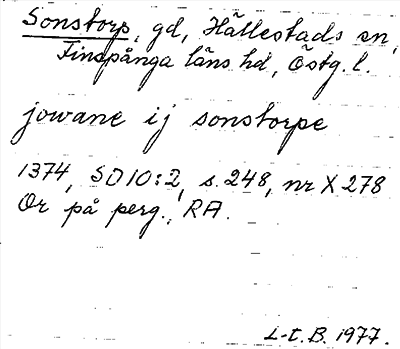 Sonstorp, gd, Hällestads sn,
Finspånga läns hd, Östg. l.
jowane ij sonstorpe
1374, SD 10:2, s. 248, nr X 278
Or på perg., RA.
L-t. B. 1977.